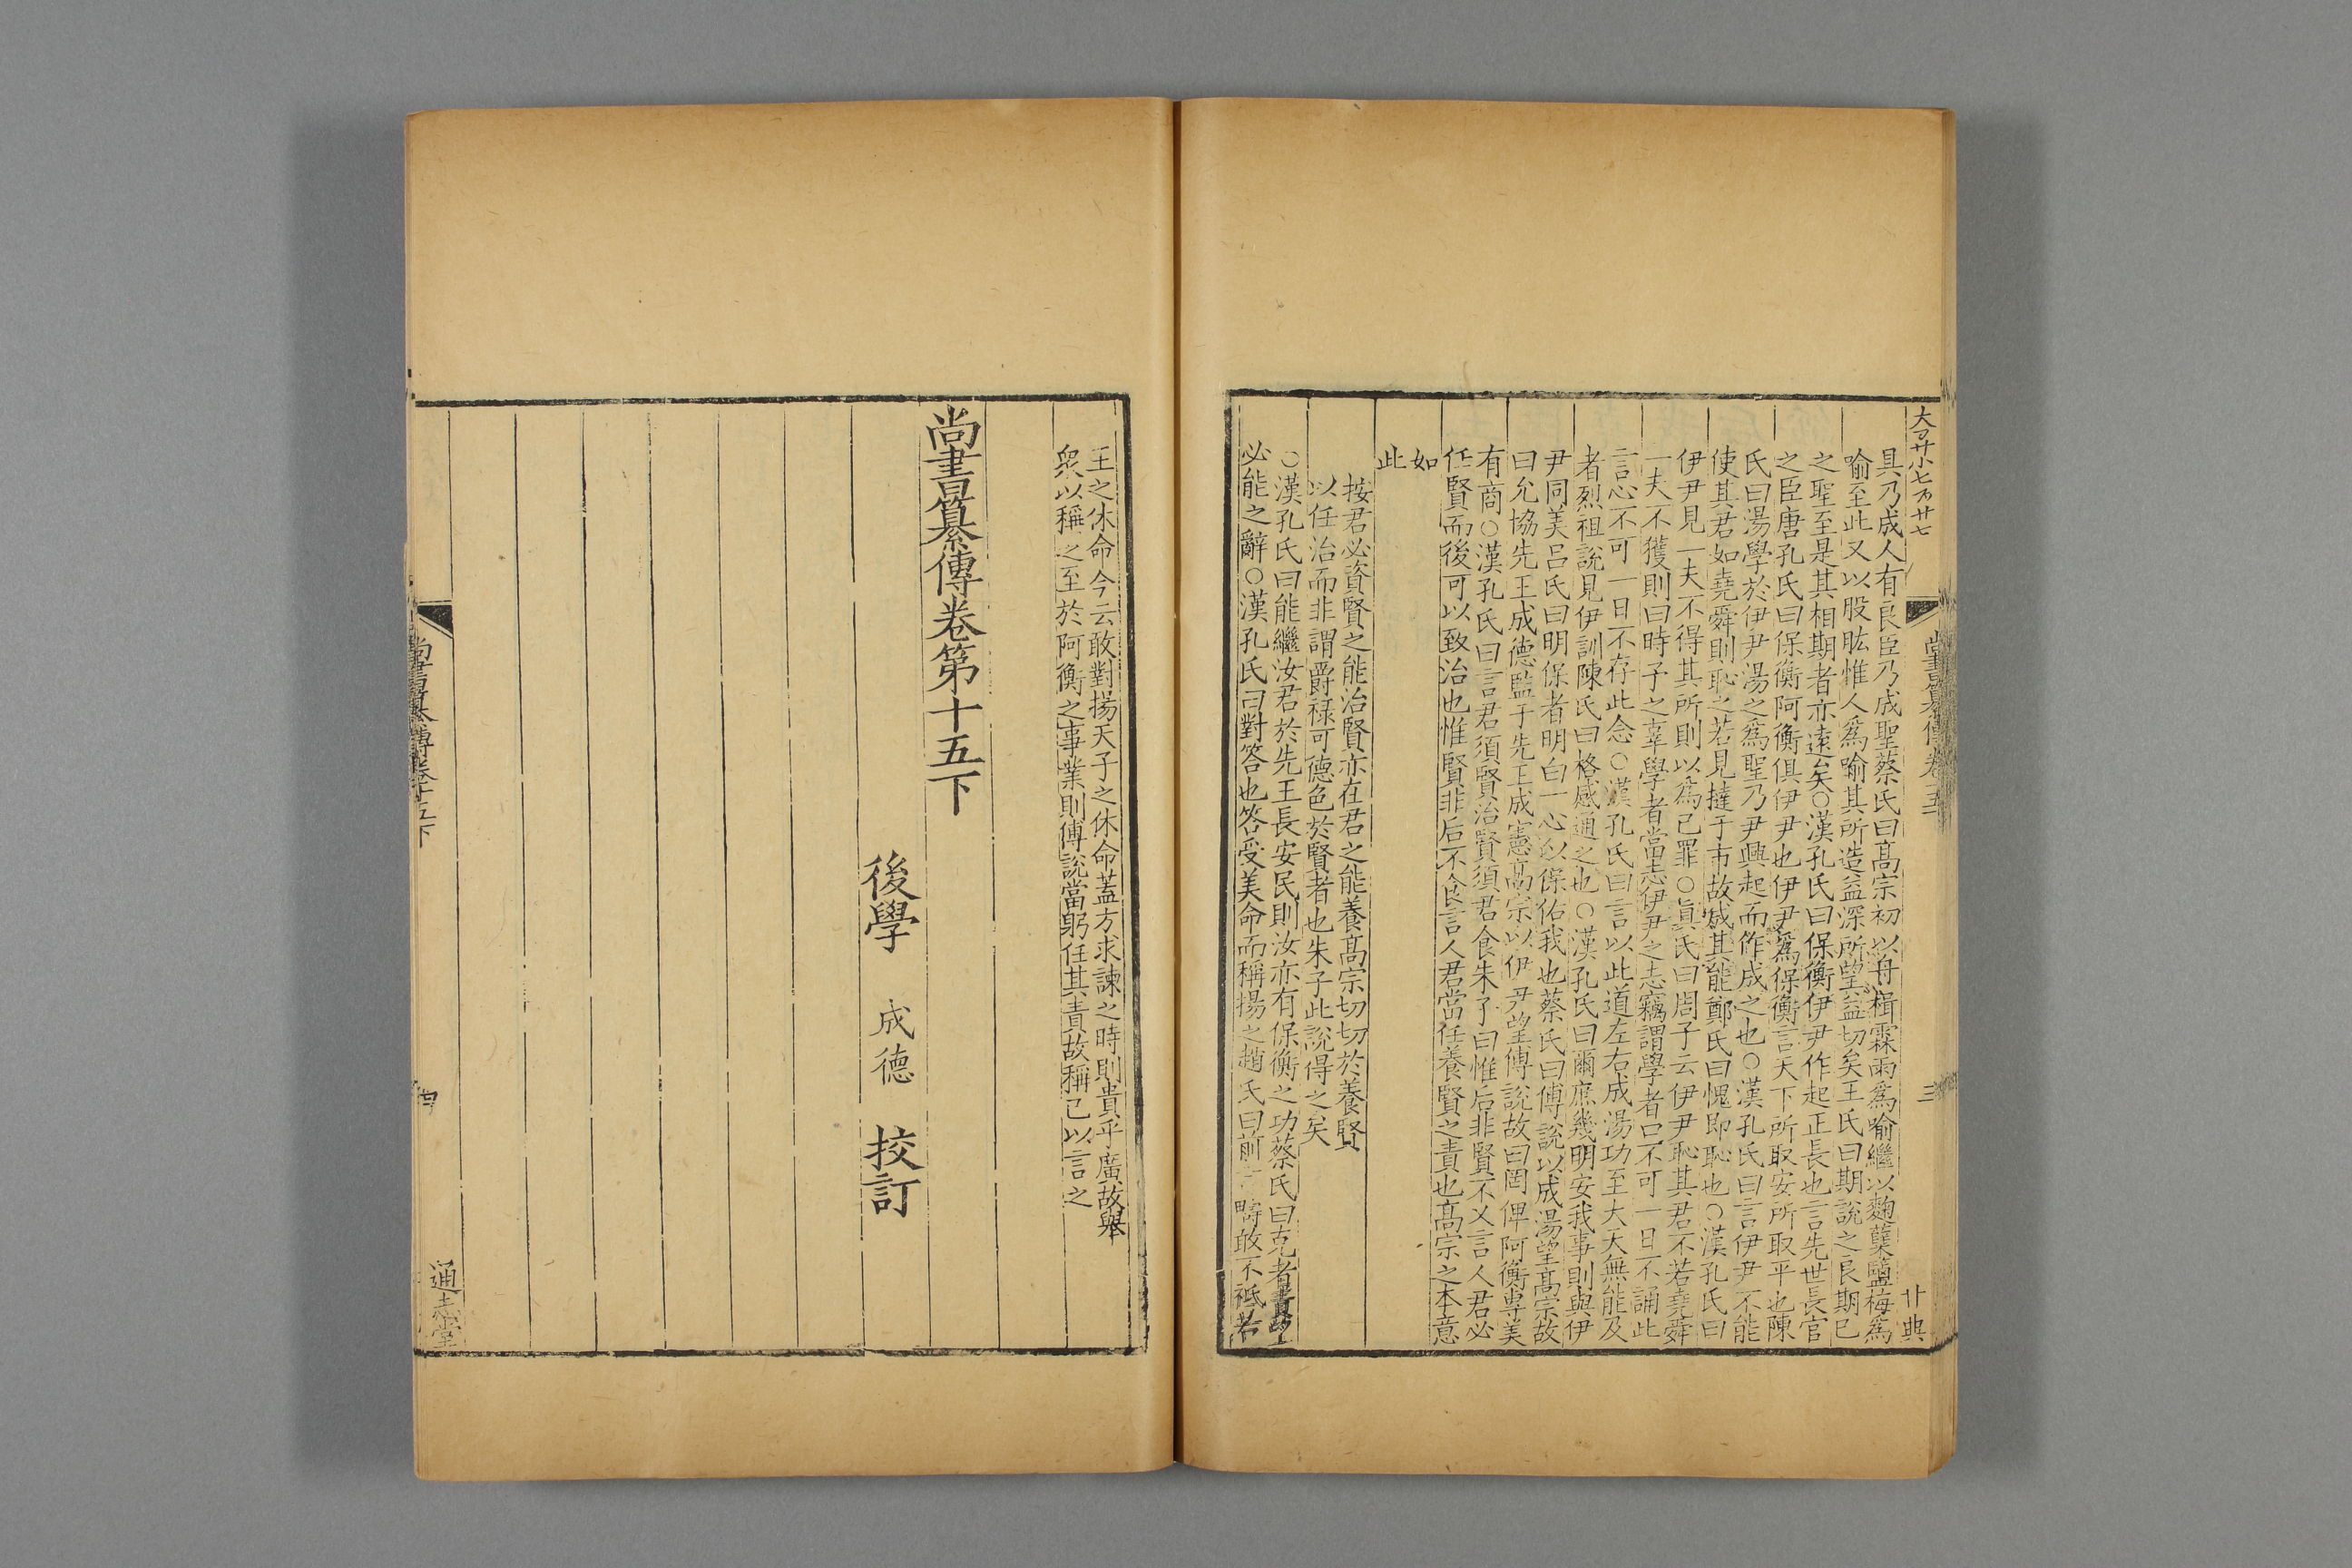 具乃成人有良臣乃成聖蔡氏曰髙宗初以舟楫霖雨爲喻繼以麴糵鹽梅爲
喻至此又以股肱惟人爲喻其所造益深所望益切矣王氏曰期說之良期已
之聖至是其相期者亦遠矣○漢孔氏曰保衡伊尹作起正長也言先世長官
之臣唐孔氏曰保衡阿衡俱伊尹也伊尹爲保衡言天下所取安所取平也陳
氏曰湯學於伊尹湯之爲聖乃尹興起而作成之也○漢孔氏曰言伊尹不能
使其君如堯舜則恥之若見撻于市故成其能鄭氏曰愧即恥也○漢孔氏曰
伊尹見一夫不得其所則以爲己罪○眞氏曰周子云伊尹恥其君不若堯舜
一夫不獲則曰時予之辜學者當志伊尹之志竊謂學者口不可一日不誦此
言心不可一日不存此念○漢孔氏曰言以此道左右成湯功至大天無能及
者烈祖說見伊訓陳氏曰格感通之也○漢孔氏曰爾庶幾明安我事則與伊
尹同美呂氏曰明保者明白一心以保佑我也蔡氏曰傅說以成湯望髙宗故
曰允協先王成德監于先王成憲髙宗以伊尹望傅說故曰罔俾阿衡專美
有商○漢孔氏曰言君須賢治賢須君食朱子曰惟后非賢不乂言人君必
任賢而後可以致治也惟賢非后不食言人君當任養賢之責也髙宗之本意
如
此
按君必資賢之能治賢亦在君之能養髙宗切切於養賢
以任治而非謂爵禄可德色於賢者也朱子此說得之矣
○漢孔氏曰能繼汝君於先王長安民則汝亦有保衡之功蔡氏曰克者責望
必能之辭○漢孔氏曰對答也答受美命而稱揚之趙氏曰前言疇敢不祗若
大 廿 小七 廿七
尚書纂傳卷十五下
三
廿典
王之休命今云敢對揚天子之休命蓋方求諫之時則貴乎廣故舉
衆以稱之至於阿衡之事業則傅說當躬任其責故稱己以言之
尚書纂傳卷第十五下
後學 成德 挍訂
尚書纂傳卷十五下
四
通志堂